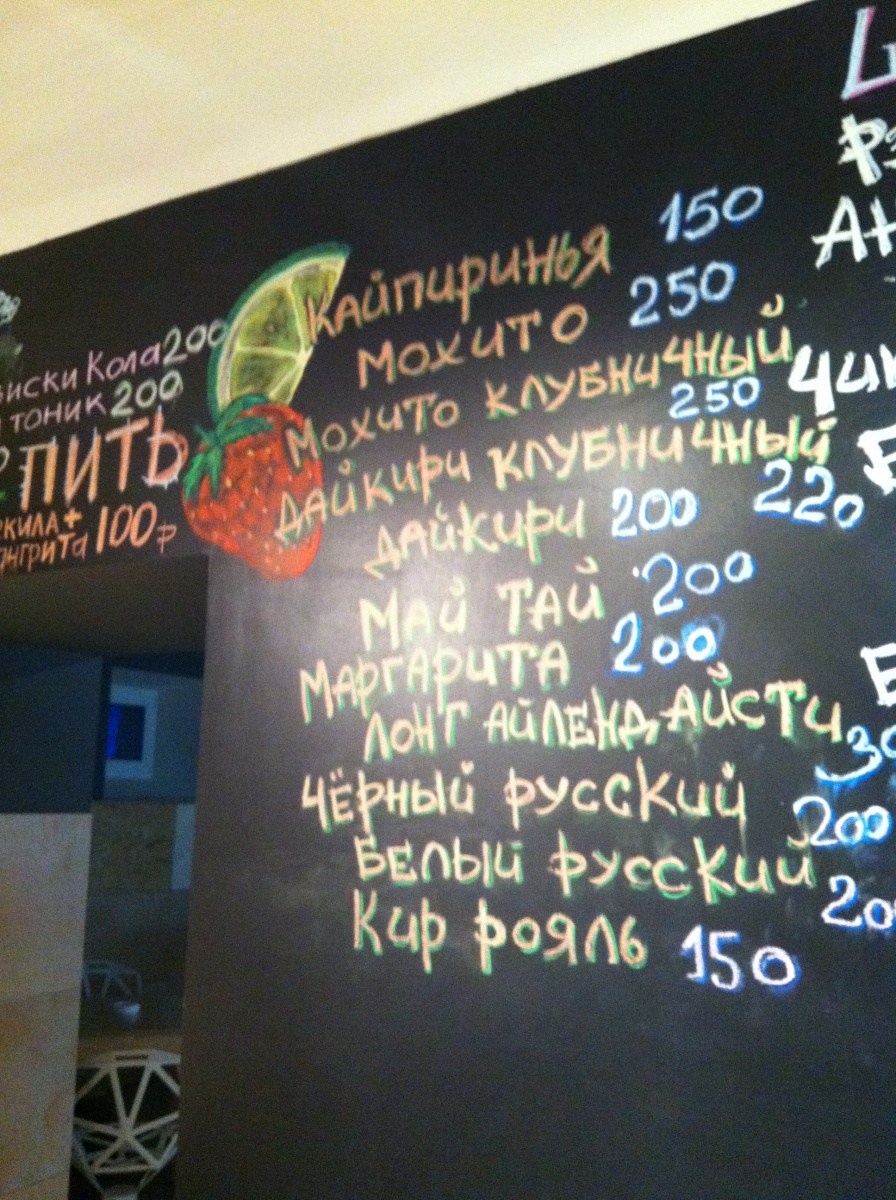 Кола 200
тоник 200
ПИТЬ
100р
КАЙПИРИНЬЯ 150
МОХИТО 250
МОХИТО КЛУБНИЧНЫЙ
250
ДАЙКИРИ КЛУБНИЧНЫЙ
220
ДАЙКИРИ 200
МАЙ ТАЙ 200
МАРГАРИТА 200
ЛОНГ АЙЛЕНД, АЙСТИ
ЧЁРНЫЙ РУССКИЙ 200
БЕЛЫЙ РУССКИЙ
КИР РОЯЛЬ 150